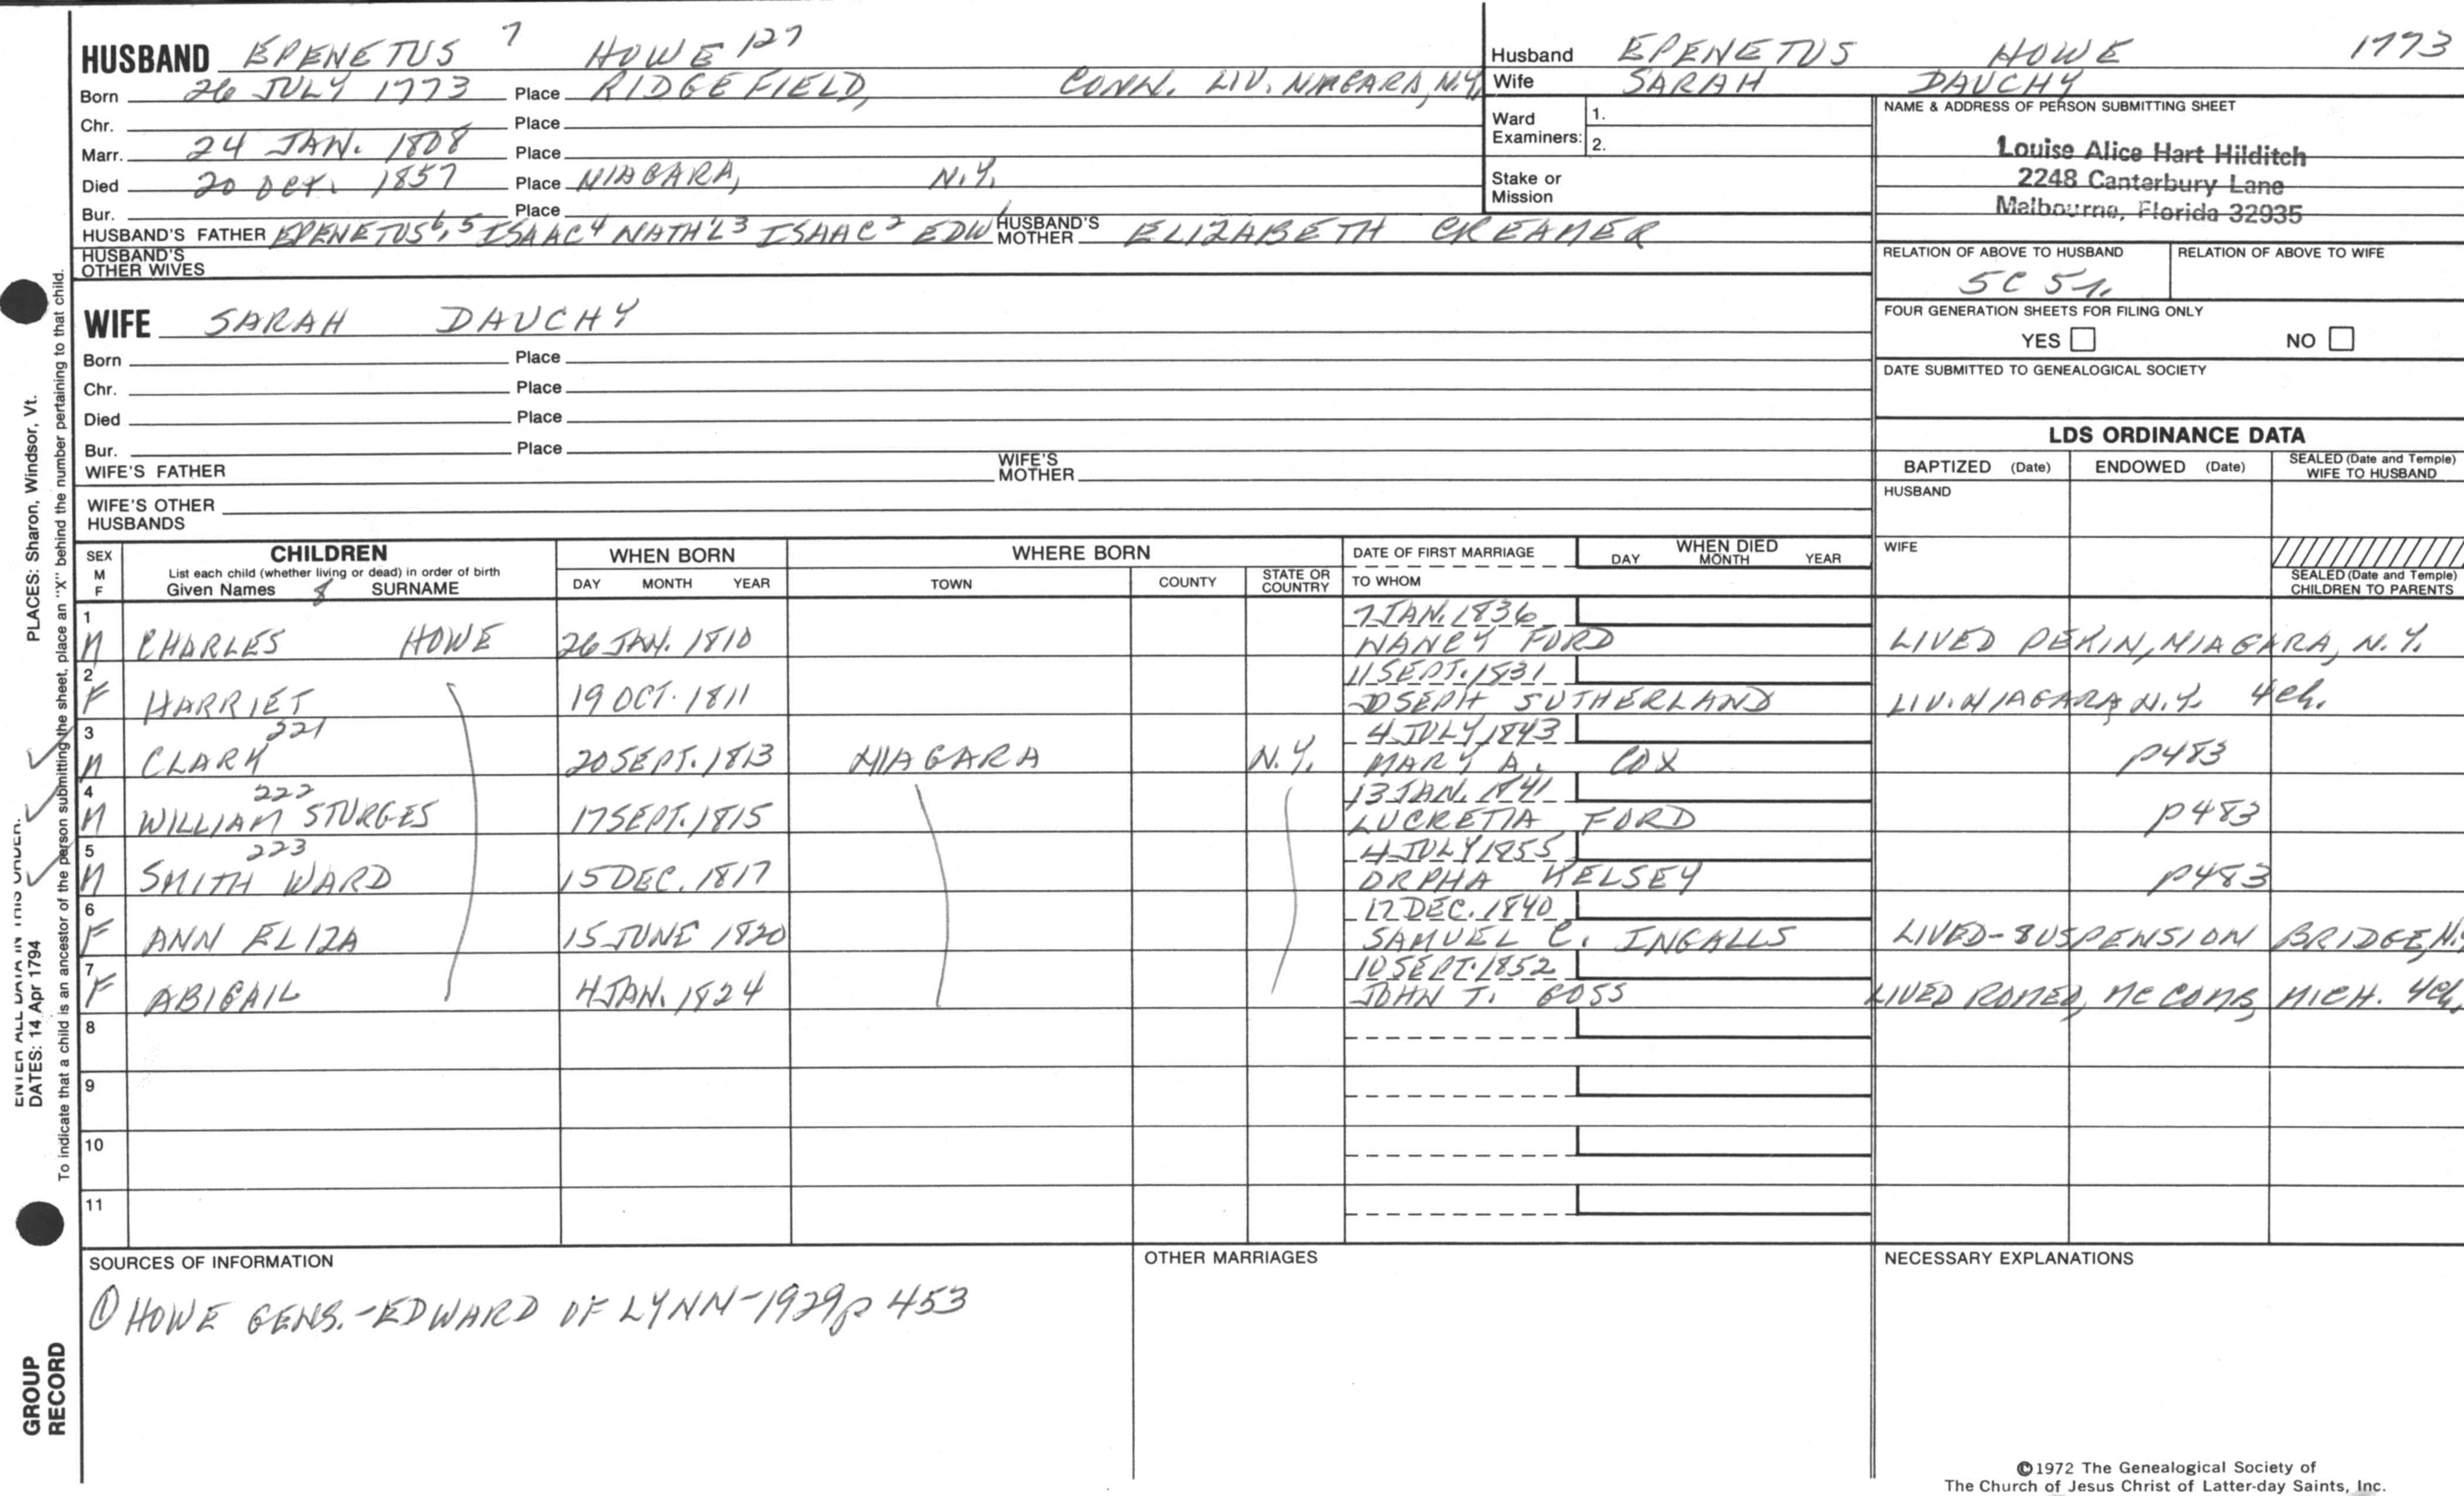 HUSBAND EPENETUS 7 HOWE 127
Born 26 JULY 1773 Place RIDGEFIELD, CONN. LIV. NIAGARA, N.Y.
Chr. Place
Marr. 24 JAN. 1808 Place
Died 20 OCT. 1857 Place NIAGARA, N.Y.
Bur. Place
HUSBAND'S FATHER EPENETUS6,5 ISAAC4 NATH'L3 ISAAC2 EDW1 HUSBAND'S MOTHER ELIZABETH CREAMER
HUSBAND'S OTHER WIVES
WIFE SARAH DAUCHY
Born Place
Chr. Place
Died Place
Bur. Place
WIFE'S FATHER WIFE'S MOTHER
WIFE'S OTHER HUSBANDS
Husband EPENETUS HOWE 1773
Wife SARAH DAUCHY
Ward Examiners: 1.
2.
Stake or Mission
NAME & ADDRESS OF PERSON SUBMITTING SHEET
Louise Alice Hart Hilditch
2248 Canterbury Lane
Melbourne, Florida 32935
RELATION OF ABOVE TO HUSBAND RELATION OF ABOVE TO WIFE
5C 5r.
FOUR GENERATION SHEETS FOR FILING ONLY
YES NO
DATE SUBMITTED TO GENEALOGICAL SOCIETY
LDS ORDINANCE DATA
BAPTIZED (Date) ENDOWED (Date) SEALED (Date and Temple) WIFE TO HUSBAND
HUSBAND
WIFE
SEALED (Date and Temple) CHILDREN TO PARENTS
SEX M F CHILDREN WHEN BORN WHERE BORN DATE OF FIRST MARRIAGE WHEN DIED
List each child (whether living or dead) in order of birth
Given Names 8 SURNAME DAY MONTH YEAR TOWN COUNTY STATE OR COUNTRY TO WHOM DAY MONTH YEAR
1 7 JAN. 1836
M CHARLES HOWE 26 JAN. 1810 NANCY FORD LIVED PEKIN, NIAGARA, N.Y.
2 11 SEPT. 1831
F HARRIET 19 OCT. 1811 JOSEPH SUTHERLAND LIV. NIAGARA, N.Y. 4ch.
3 221 4 JULY 1843
M CLARK 20 SEPT. 1813 NIAGARA N.Y. MARY A. COX p483
4 222 13 JAN. 1841
M WILLIAM STURGES 17 SEPT. 1815 LUCRETIA FORD p483
5 223 4 JULY 1855
M SMITH WARD 15 DEC. 1817 ORPHA KELSEY p483
6 17 DEC. 1840
F ANN ELIZA 15 JUNE 1820 SAMUEL C. INGALLS LIVED-SUSPENSION BRIDGE, N.
7 10 SEPT. 1852
F ABIGAIL 4 JAN. 1824 JOHN T. GOSS LIVED ROMEO, MC COMB, MICH. 4ch.
8
9
10
11
SOURCES OF INFORMATION OTHER MARRIAGES NECESSARY EXPLANATIONS
① HOWE GENS.-EDWARD OF LYNN-1929 p 453
©1972 The Genealogical Society of
The Church of Jesus Christ of Latter-day Saints, Inc.
GROUP RECORD
ENTER ALL DATA IN THIS ORDER:
DATES: 14 Apr 1794 PLACES: Sharon, Windsor, Vt.
To indicate that a child is an ancestor of the person submitting the sheet, place an "X" behind the number pertaining to that child.